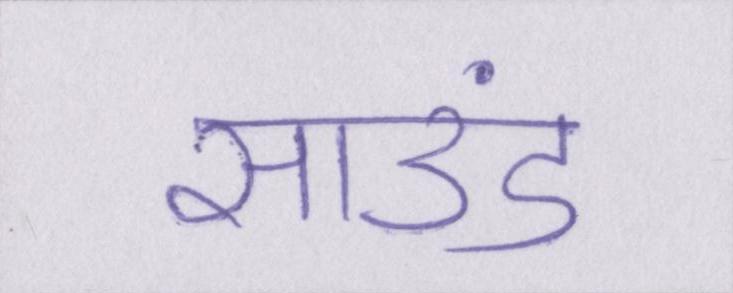 साउंड